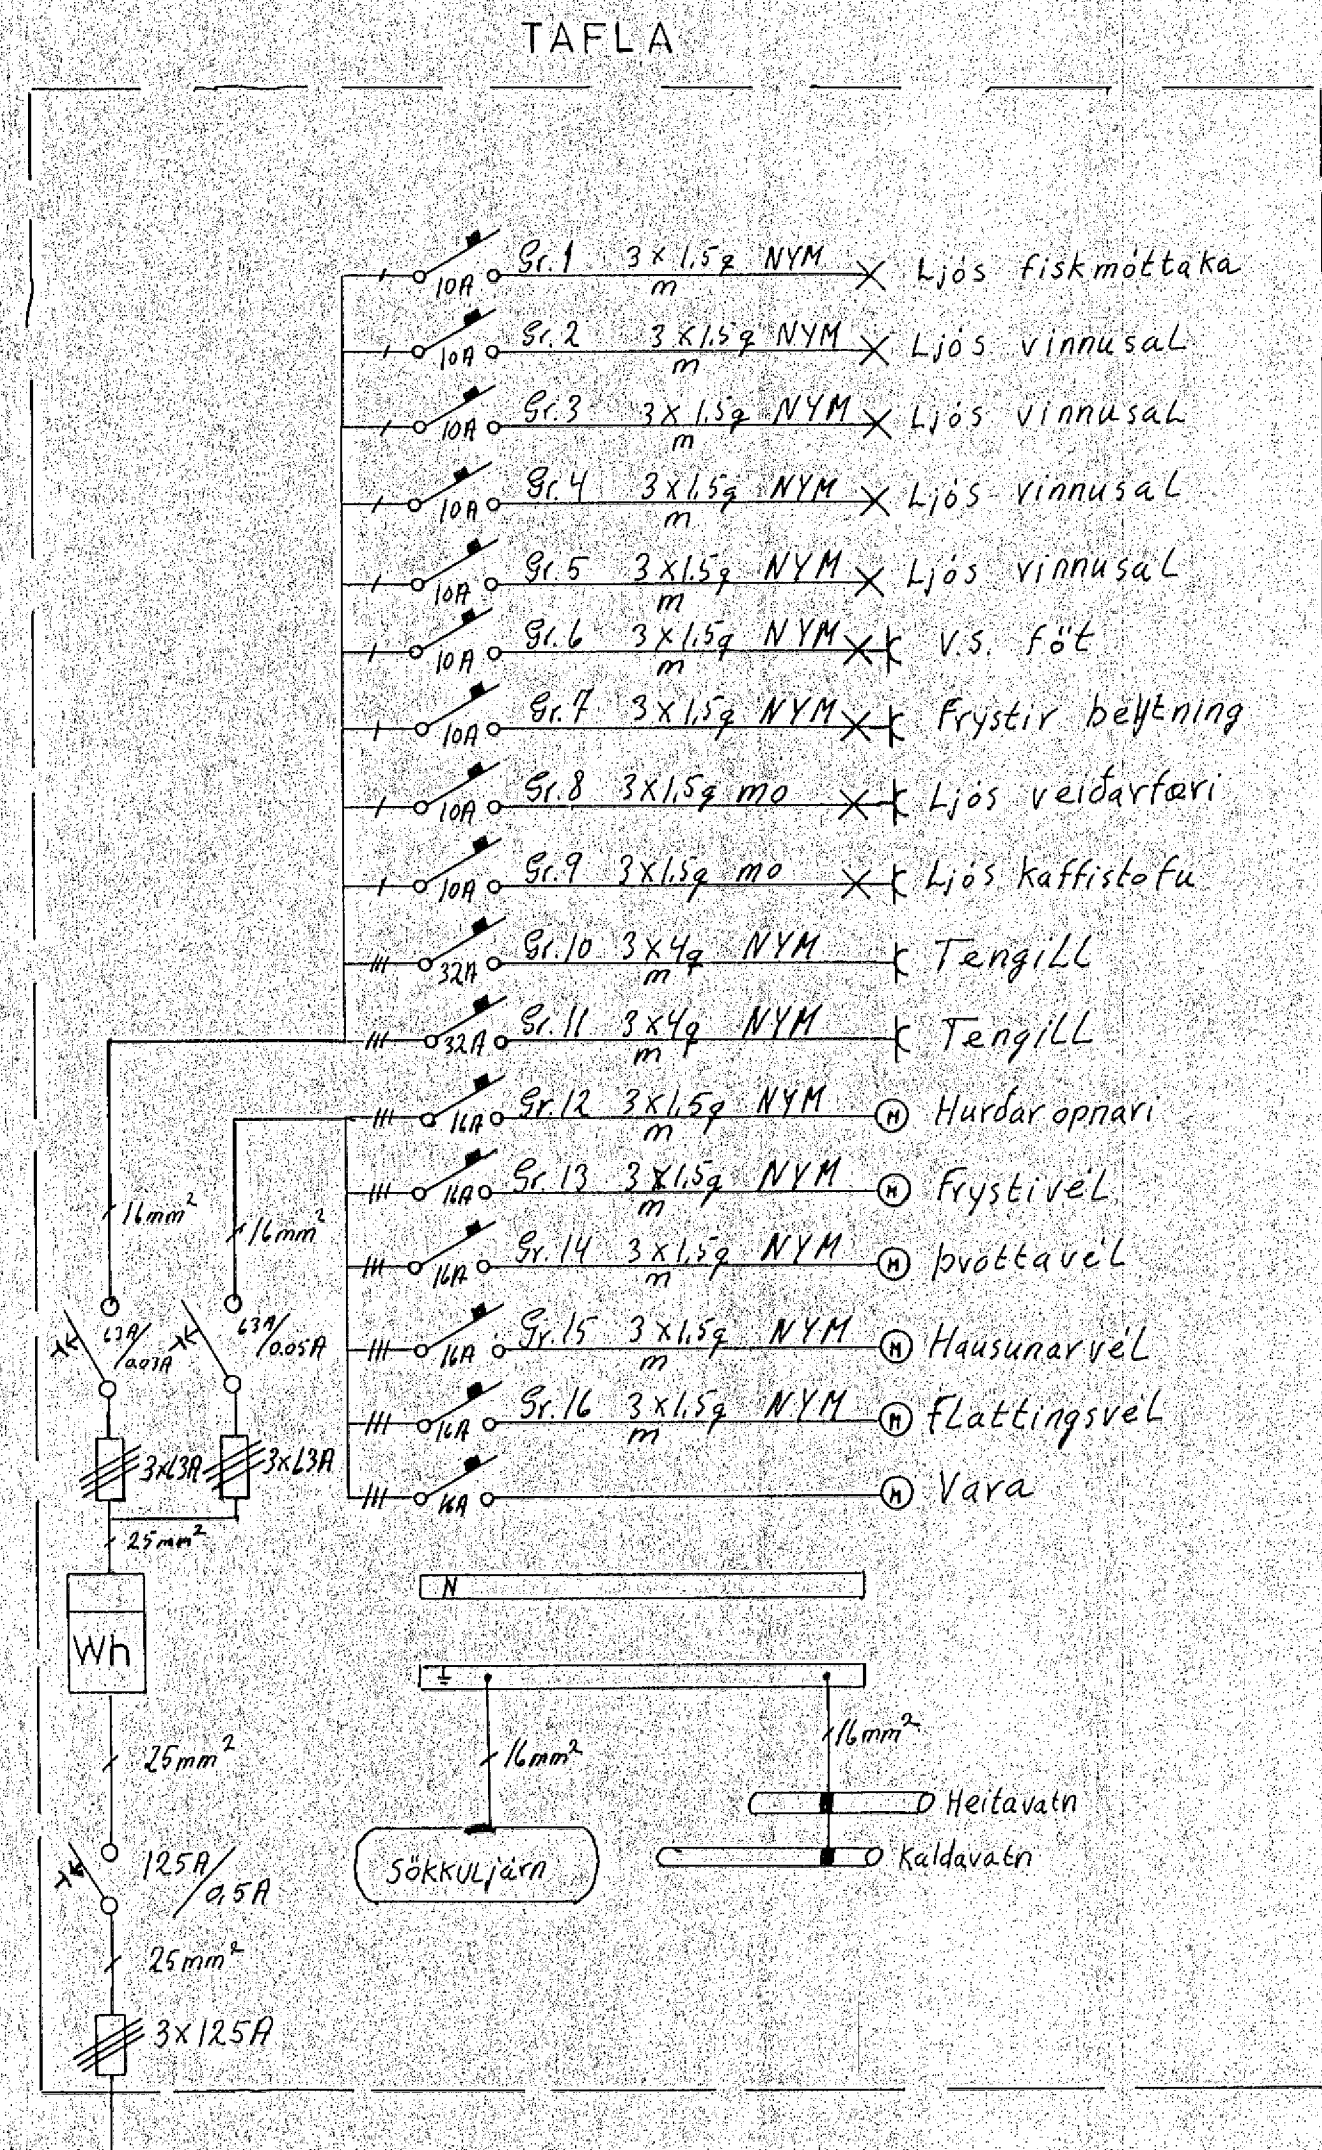 TAFLA
Gr.1 3 x 1.5q NYM Ljós fiskmóttaka
10A m
Gr.2 3 x 1.5q NYM Ljós vinnusal
10A m
Gr.3 3 x 1.5q NYM Ljós vinnusal
10A m
Gr.4 3 x 1.5q NYM Ljós vinnusal
10A m
Gr.5 3 x 1.5q NYM Ljós vinnusal
10A m
Gr.6 3 x 1.5q NYM V.S. föt
10A m
Gr.7 3 x 1.5q NYM Frystir beytning
10A
Gr.8 3 x 1.5q mo Ljós veiðarfæri
10A
Gr.9 3 x 1.5q mo Ljós kaffistofu
10A
Gr.10 3 x 4q NYM Tengill
32A m
Gr.11 3 x 4q NYM Tengill
32A m
Gr.12 3 x 1.5q NYM M Hurðaropnari
16A m
Gr.13 3 x 1.5q NYM M Frystivél
16A m
Gr.14 3 x 1.5q NYM M Þvottavél
16A m
Gr.15 3 x 1.5q NYM M Hausunarvél
16A m
Gr.16 3 x 1.5q NYM M Flattingsvél
16A m
M Vara
16A
16mm² 16mm²
63A/0.03A 63A/0.05A
3x63A 3x63A
25mm²
Wh
25mm²
125A/0,5A
25mm²
3x125A
N
16mm² 16mm²
Sökkuljárn
Heitavatn
Kaldavatn